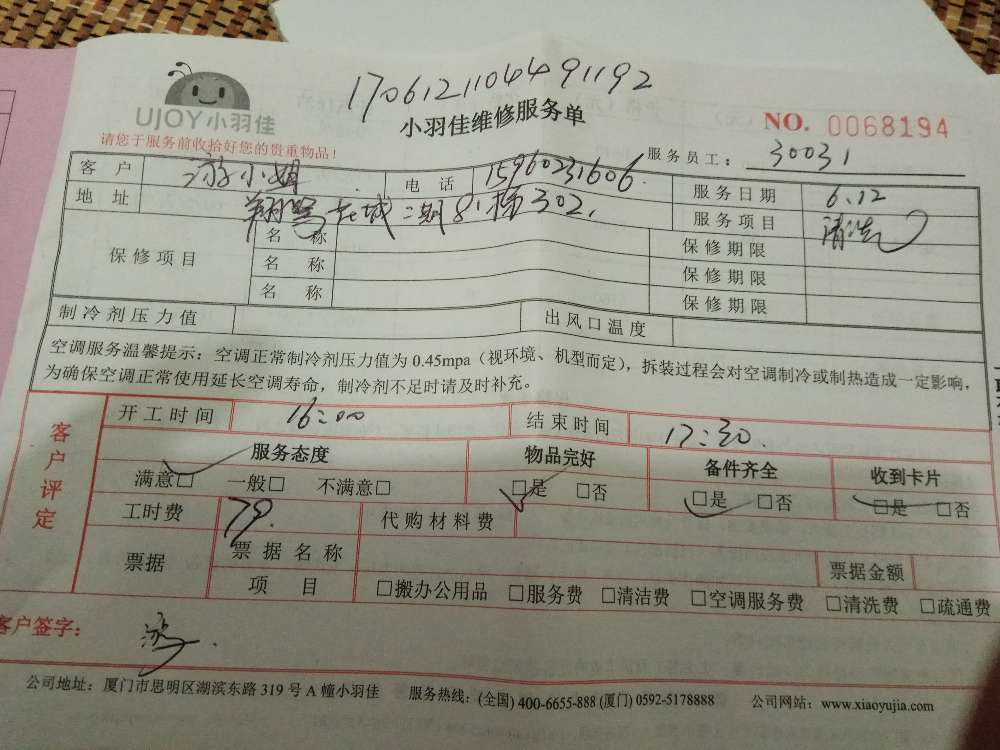 170612110449 1192
UJOY小羽佳
小羽佳维修服务单
NO. 0068194
请您于服务前收拾好您的贵重物品！
服务员工： 30031
客户 游小姐 电话 15960231606 服务日期 6.12
地址 翔鹭花城二期81栋302. 服务项目 清洗
保修项目 名称 保修期限
名称 保修期限
名称 保修期限
制冷剂压力值 出风口温度
空调服务温馨提示：空调正常制冷剂压力值为 0.45mpa（视环境、机型而定），拆装过程会对空调制冷或制热造成一定影响，
为确保空调正常使用延长空调寿命，制冷剂不足时请及时补充。
客户评定
开工时间 16:00 结束时间 17:30.
服务态度 物品完好 备件齐全 收到卡片
满意□ 一般□ 不满意□ □是 □否 □是 □否 □是 □否
工时费 79. 代购材料费
票据 票据名称 票据金额
项目 □搬办公用品 □服务费 □清洁费 □空调服务费 □清洗费 □疏通费
客户签字： 游
公司地址：厦门市思明区湖滨东路 319 号 A 幢小羽佳 服务热线：(全国) 400-6655-888 (厦门) 0592-5178888 公司网站：www.xiaoyujia.com